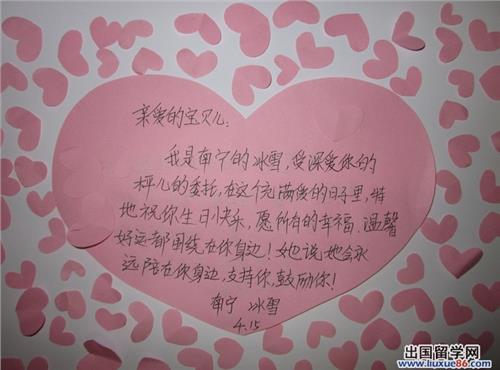 亲爱的宝贝儿：
我是南宁的冰雪，受深爱你的
秤儿的委托，在这个充满爱的日子里，特
地祝你生日快乐，愿所有的幸福、温馨
好运都围绕在你身边！她说她会永
远陪在你身边，支持你，鼓励你！
南宁 冰雪
4.15
出国留学网
www.liuxue86.com